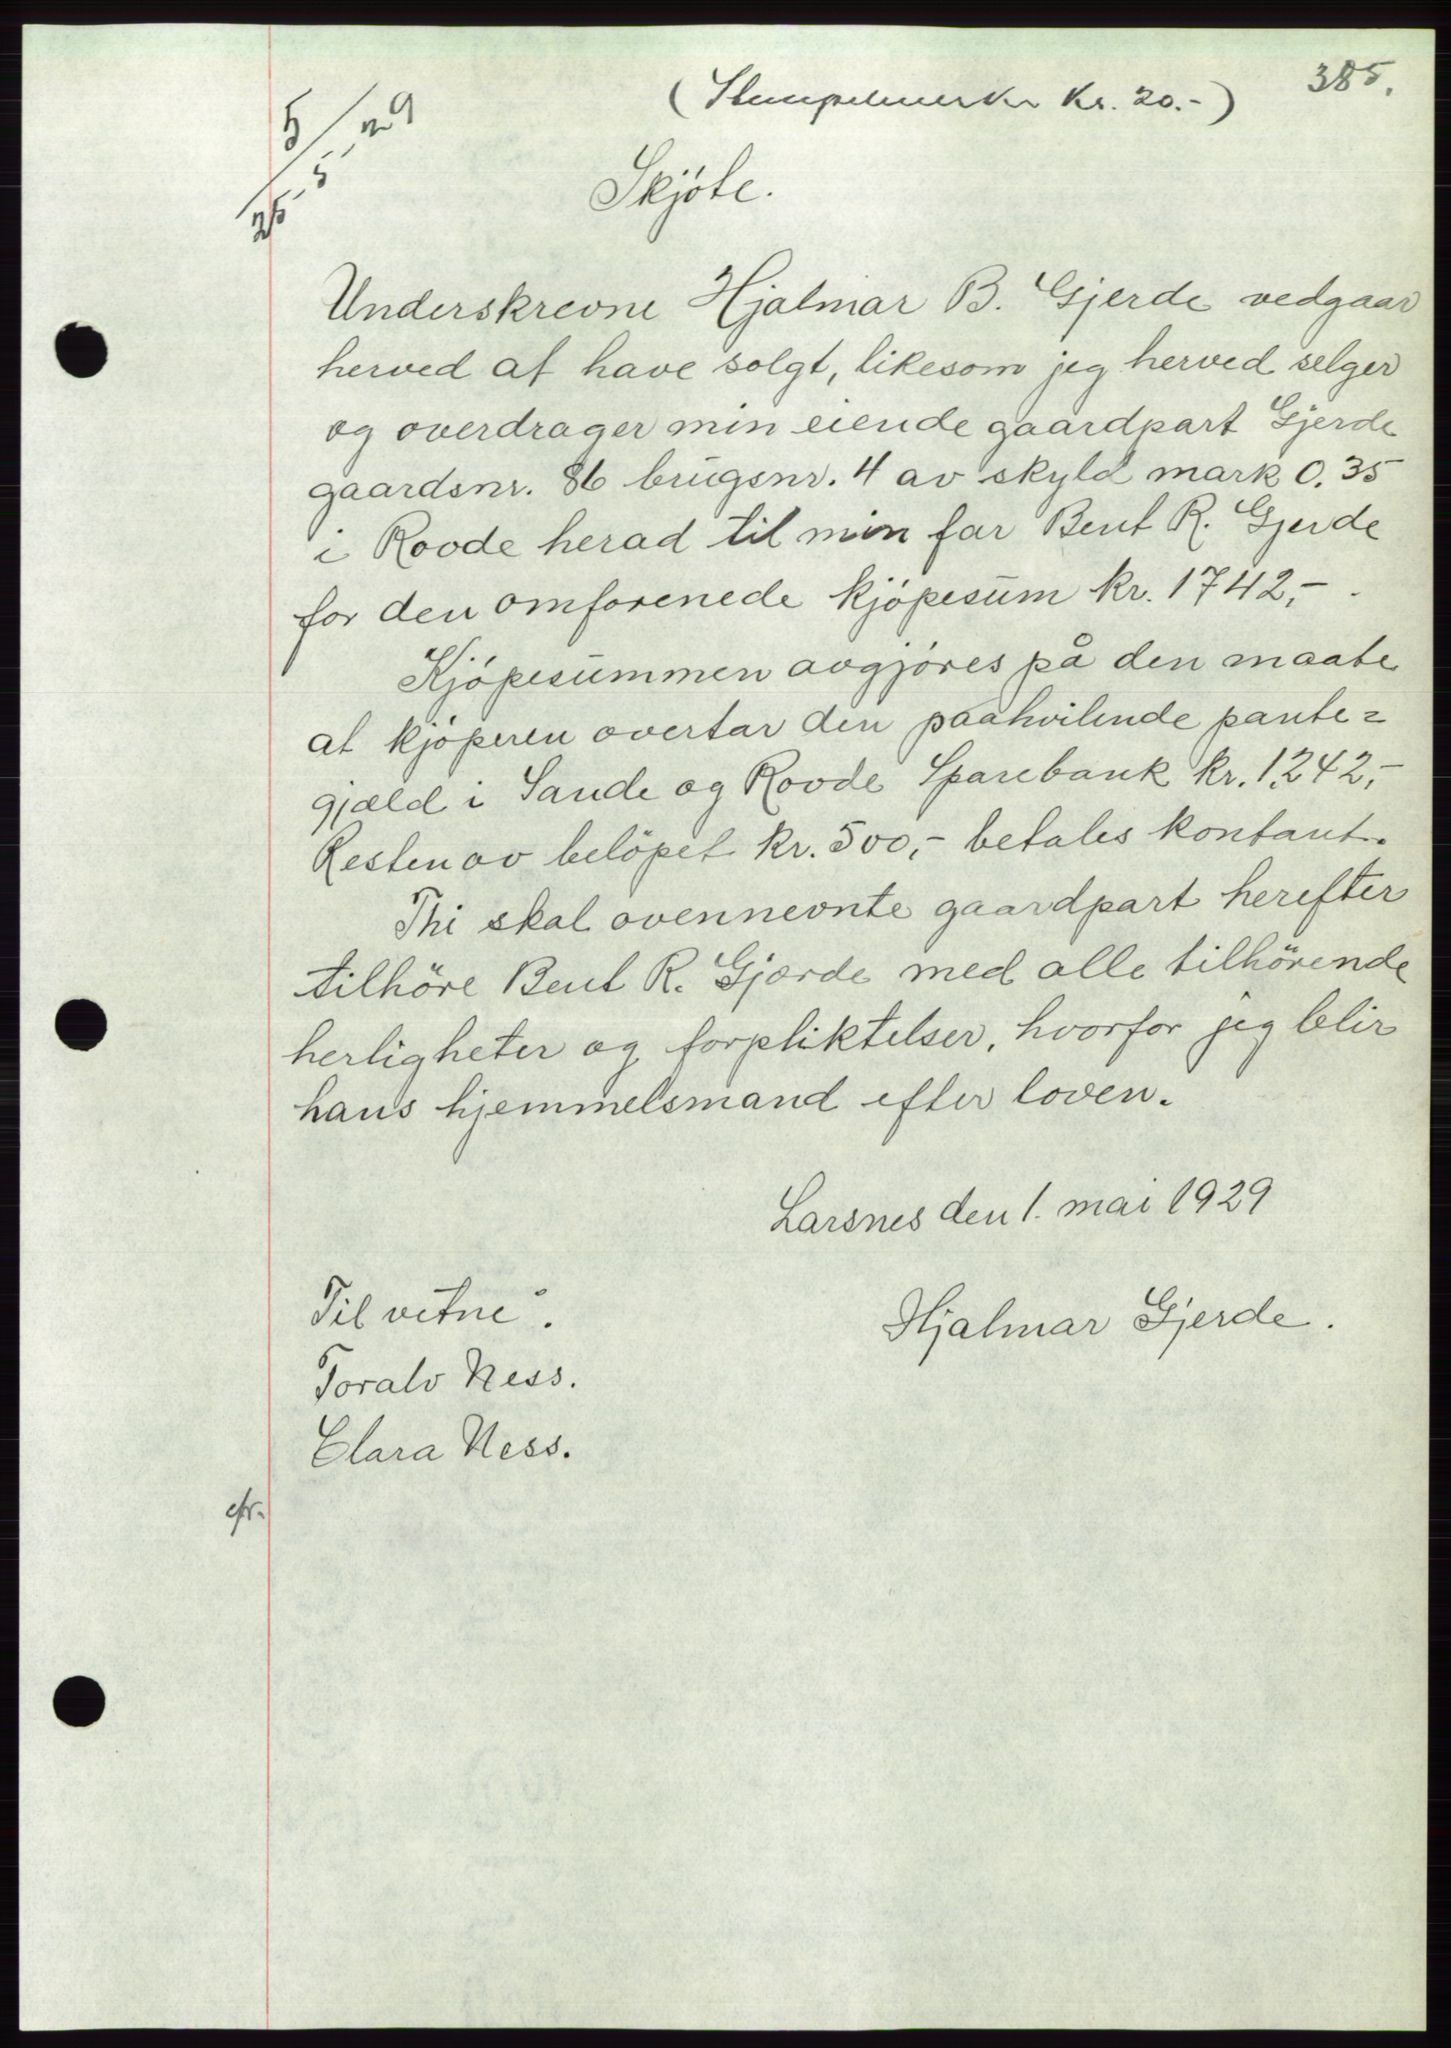 385.
(Stempelmerke Kr. 20.-)
Skjöte.
Underskrevne Hjalmar B. Gjerde vedgaar
herved at have solgt, likesom jeg herved selger
og overdrager min eiende gaardpart Gjerde
gaardsnr. 86 brugsnr. 4 av skyld mark 0.35
i Rovde herad til min far Bent R. Gjerde
for den omforenede kjöpesum kr. 1742,-.
Kjöpesummen avgjöres på den maate
at kjöperen overtar den paahvilende pante=
gjæld i Sande og Rovde Sparebank kr. 1242,-
Resten av belöpet kr. 500,- betales kontant.
Thi skal ovennevnte gaardpart herefter
tilhöre Bent R. Gjærde med alle tilhörende
herligheter og forpliktelser, hvorfor jeg blir
hans hjemmelsmand efter loven.
Larsnes den 1. mai 1929
Til vitne:
Hjalmar Gjerde.
Toralv Ness.
Clara Ness.